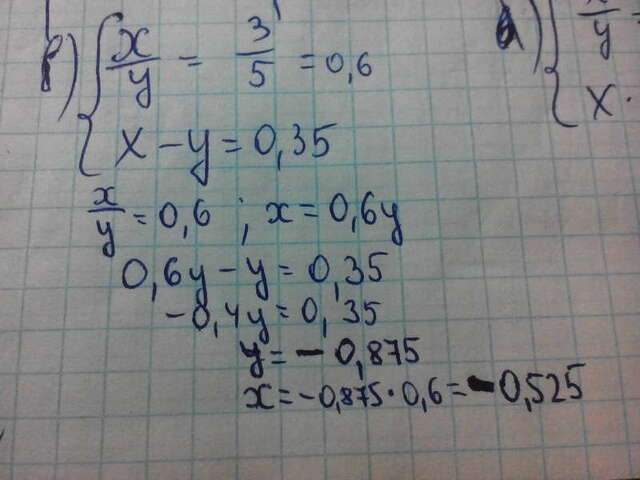 в) { x/y = 3/5 = 0,6
x - y = 0,35
x/y = 0,6 ; x = 0,6y
0,6y - y = 0,35
-0,4y = 0,35
y = - 0,875
x = -0,875 · 0,6 = -0,525
) { x/y =
x ·